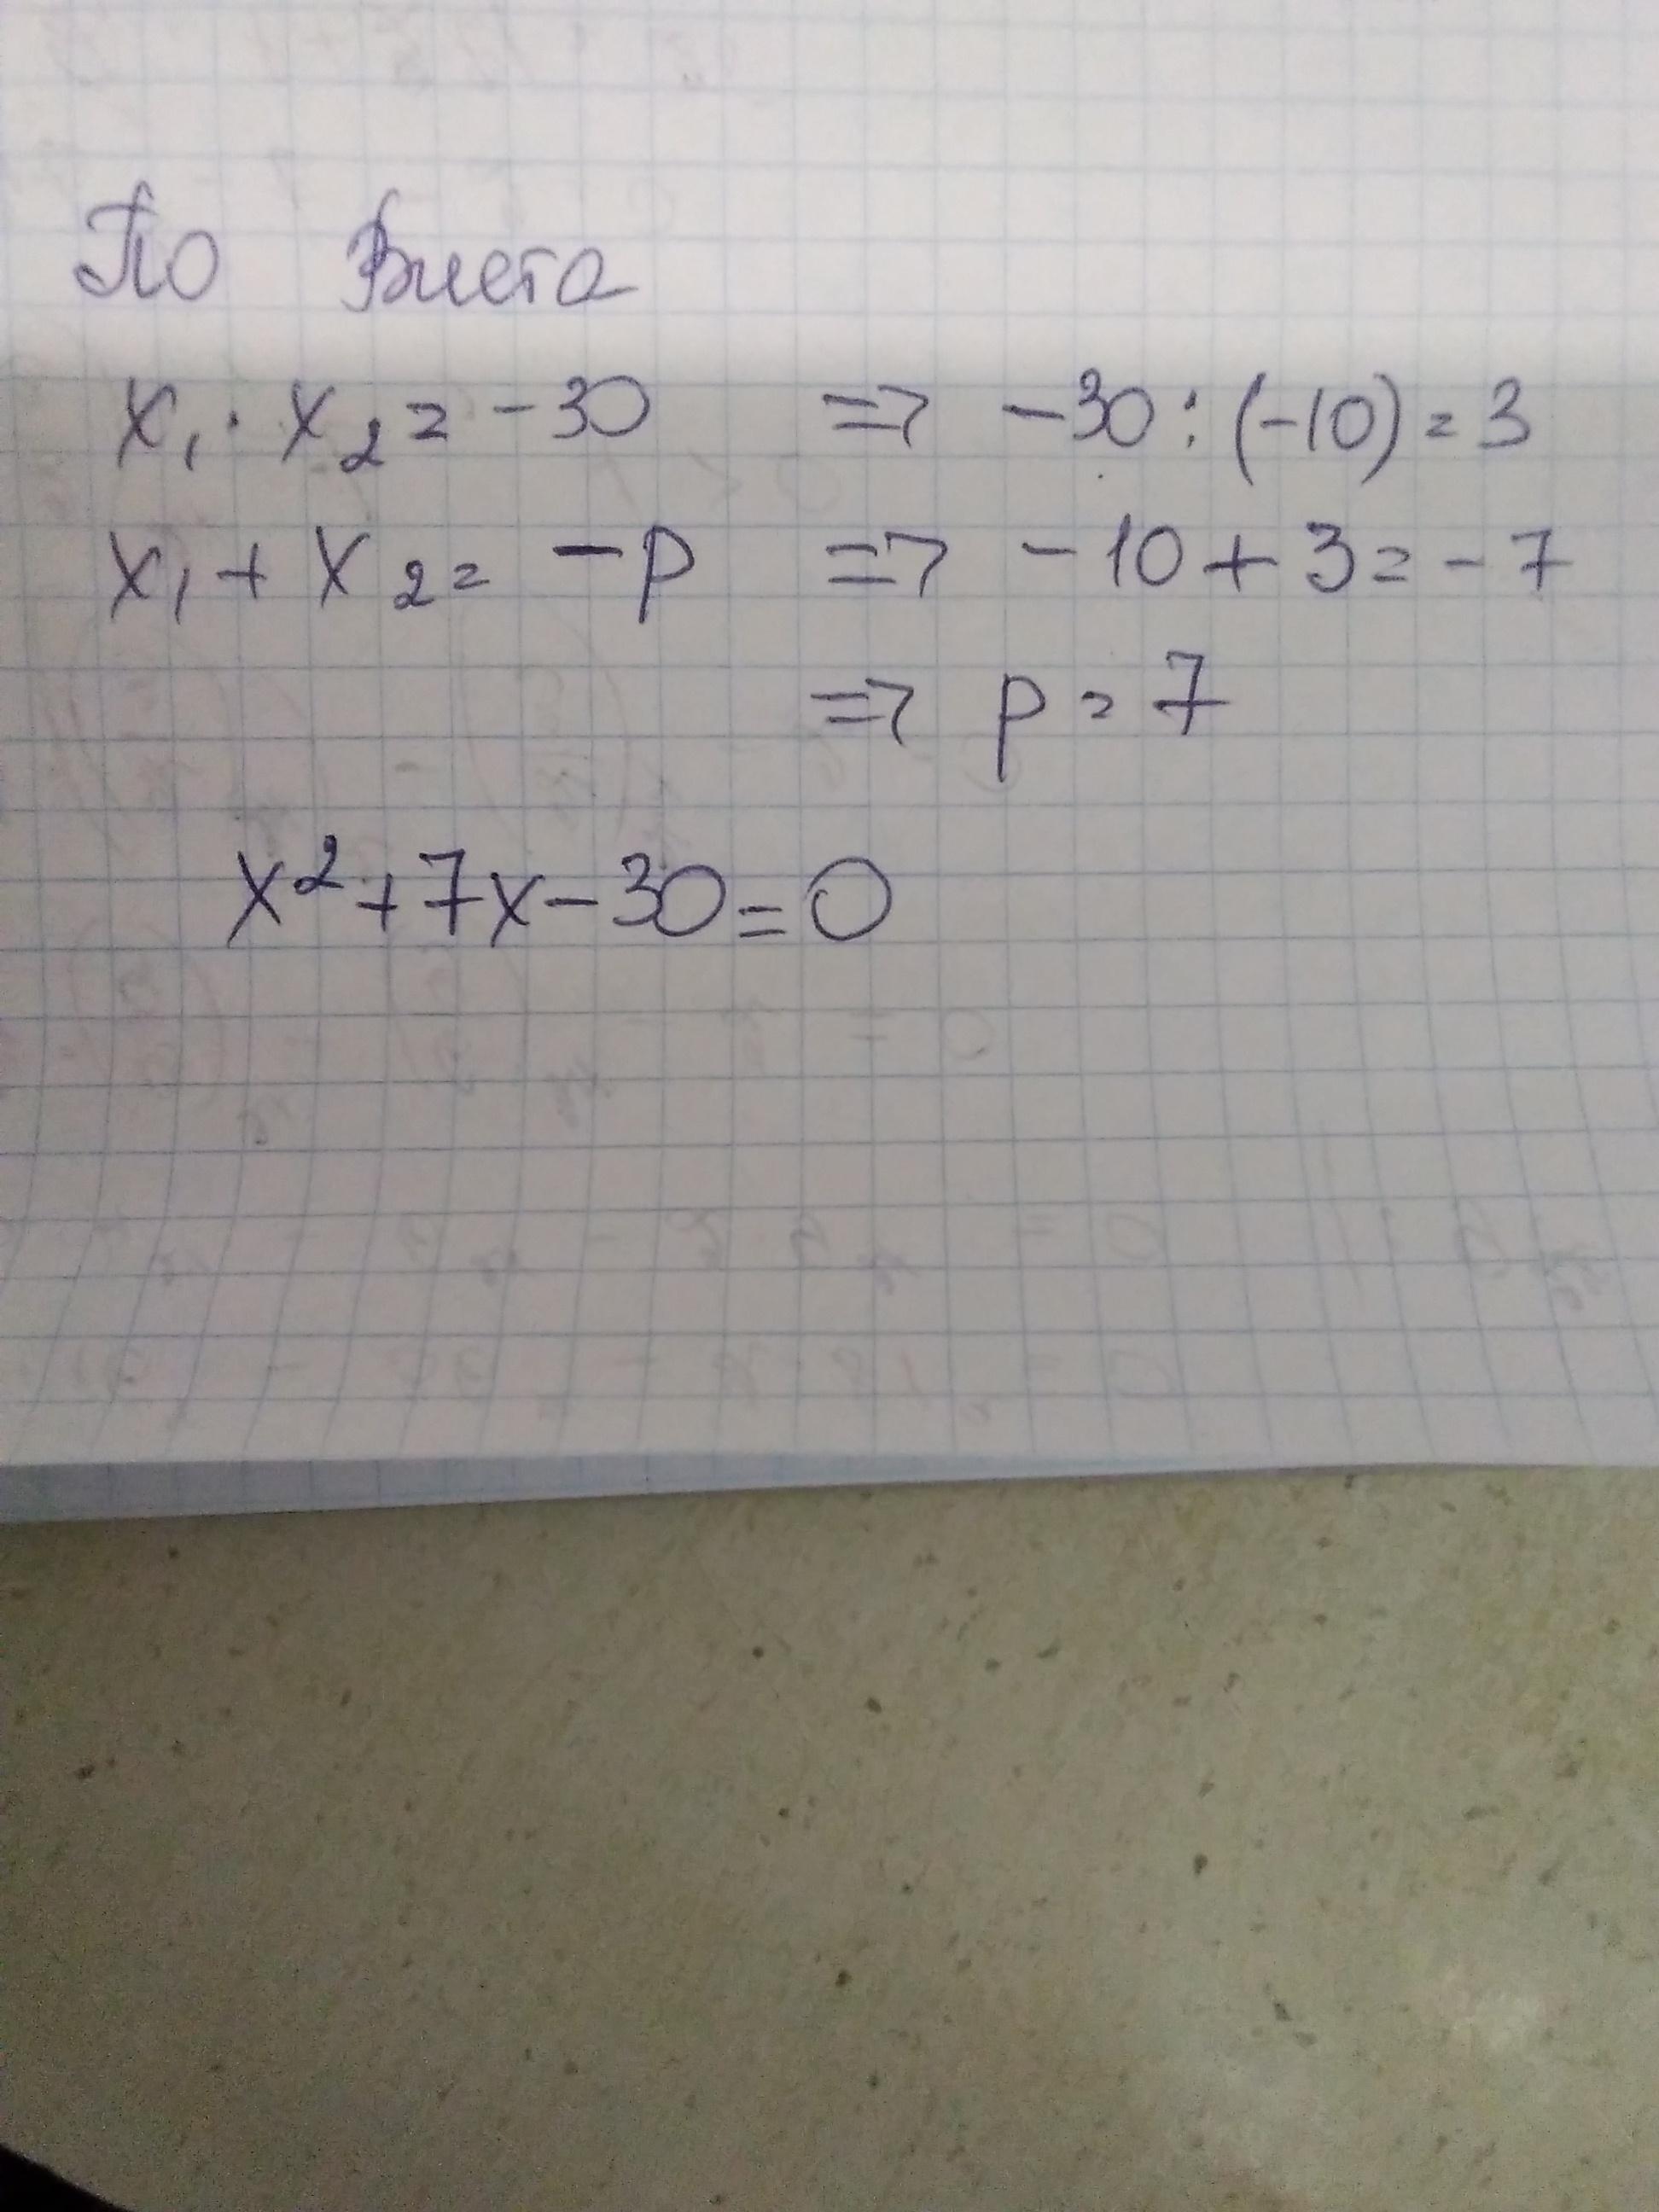 По Виета
x₁ · x₂ = -30 => -30 : (-10) = 3
x₁ + x₂ = -p => -10 + 3 = -7
=> p = 7
x² + 7x - 30 = 0